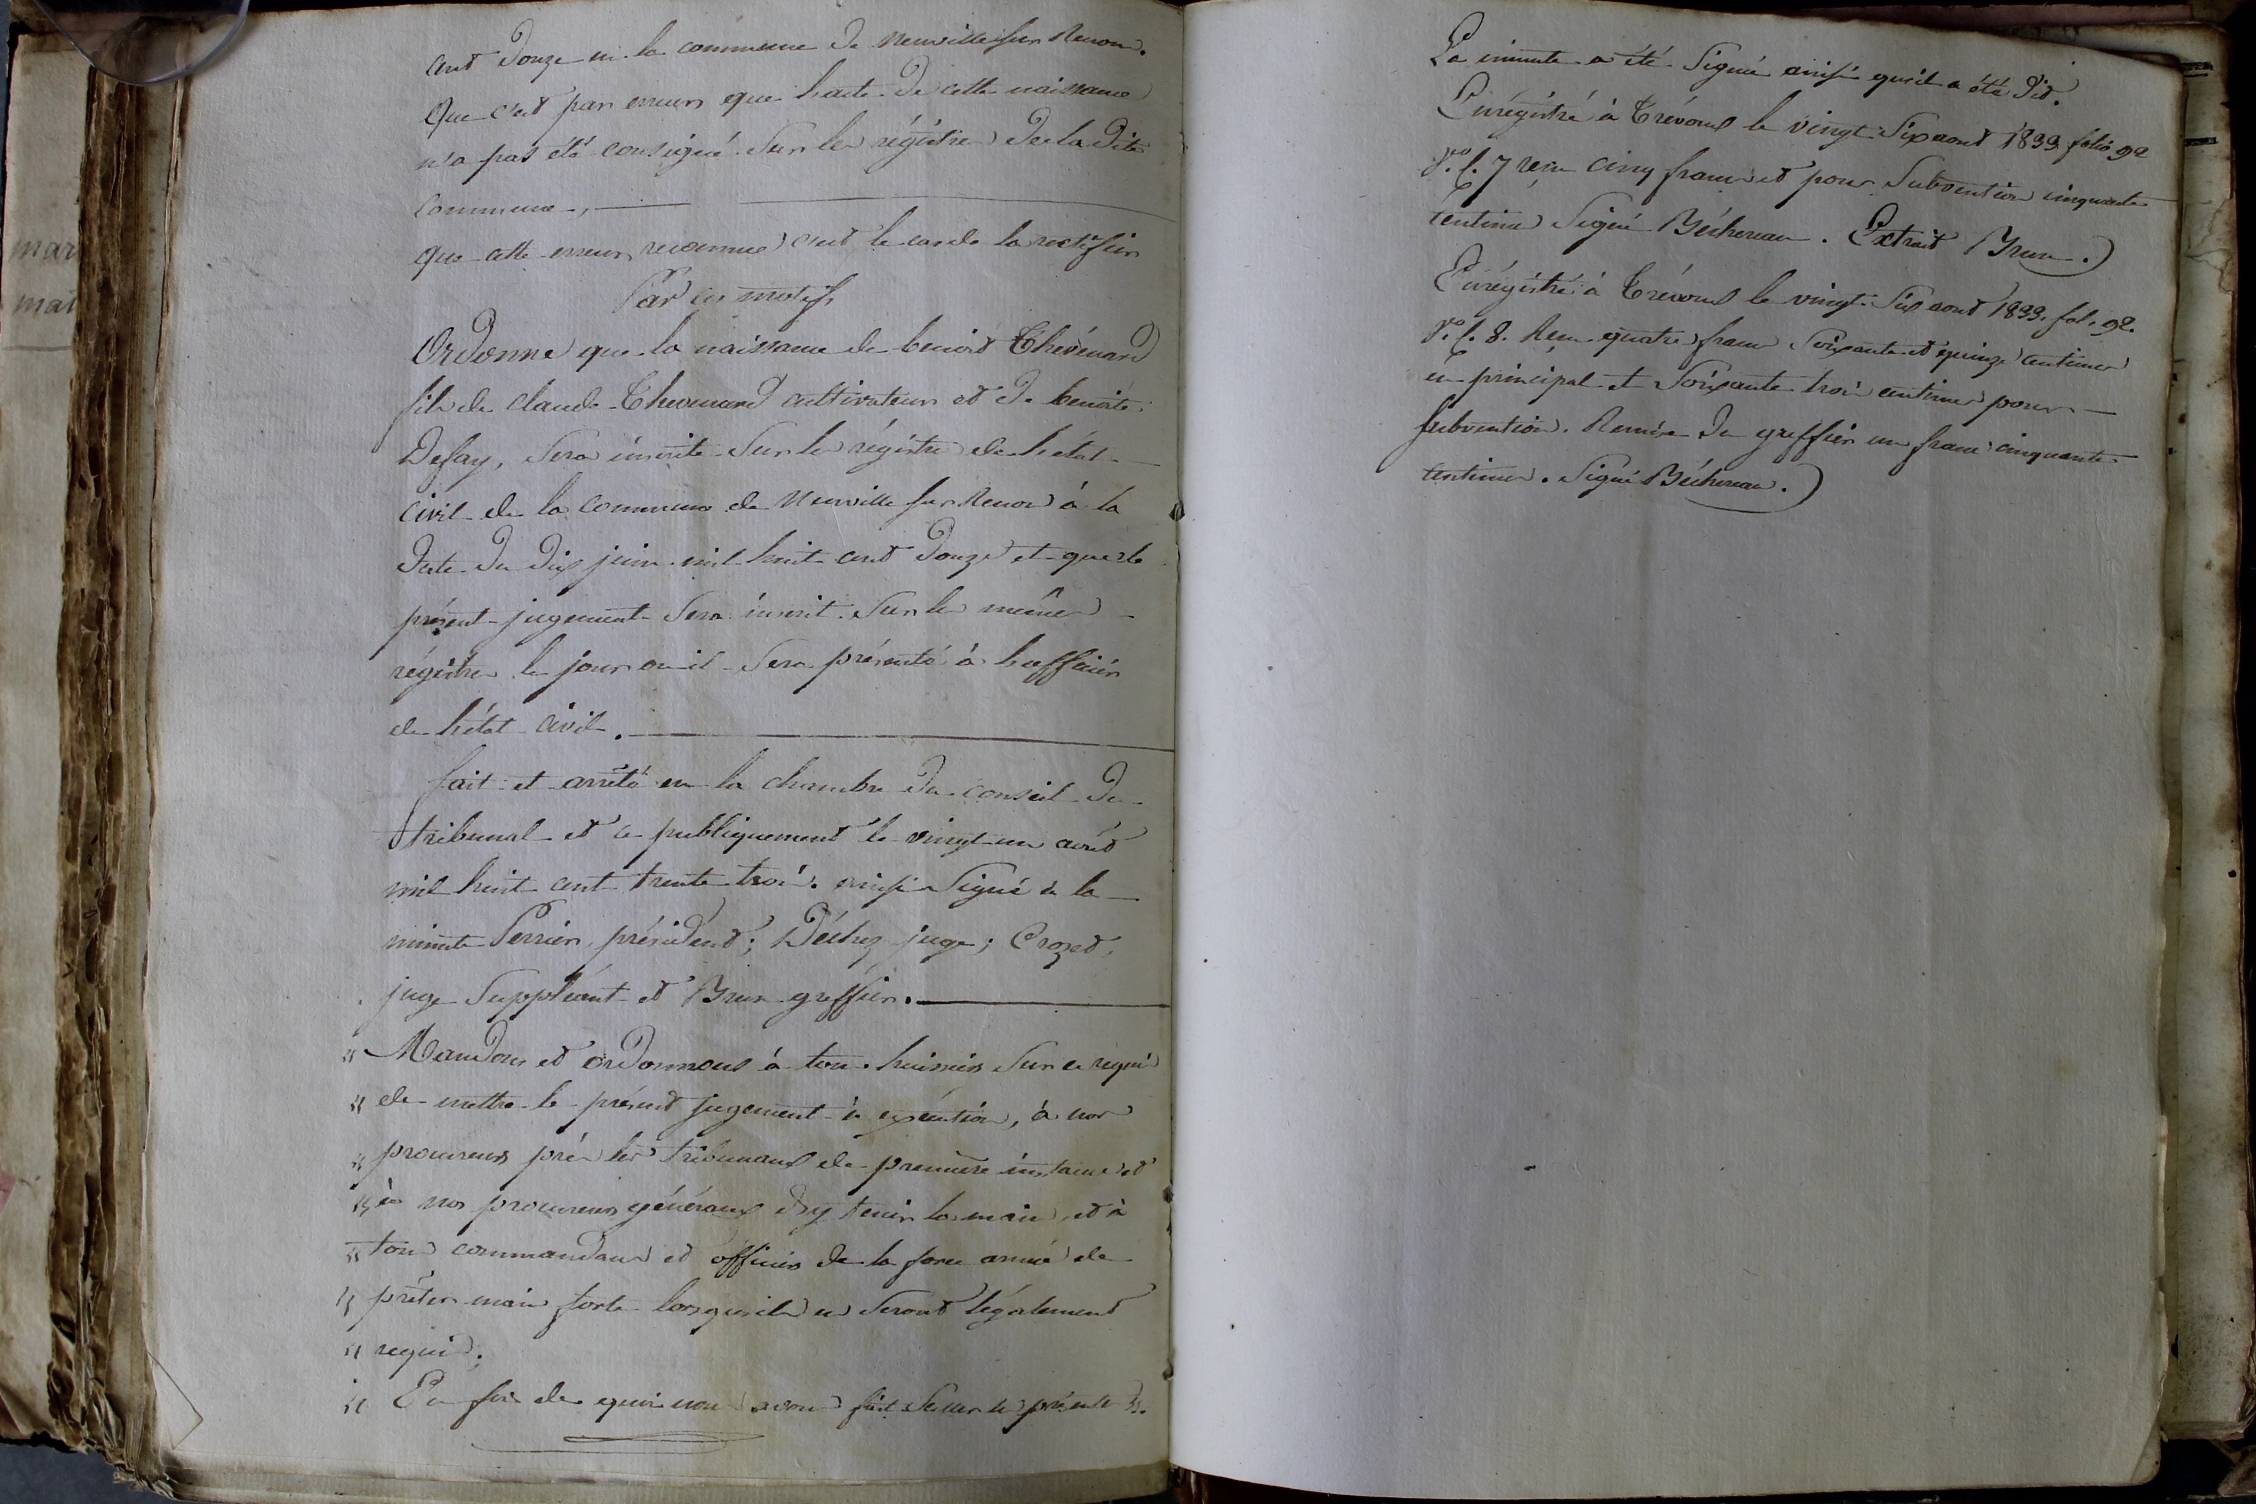 mar
mar
cent douze en la commune de Neuville sur Renon.
Que c'est par erreur que l'acte de cette naissance
n'a pas été consigné sur les régistres de la dite
commune.,
que cette erreur reconnue c'est le cas de la rectifier
Par ces motifs
Ordonne que la naissance de benoit Thévenard
fils de claude Thevenard cultivateur et de benoite
Defay, sera inscrite sur les régistres de l'état
civil de la commune de Neuville sur Renon à la
date du dix juin mil huit cent douze et que le
présent jugement sera inscrit sur les mêmes
régistres le jour ou il sera présenté à l'officier
de l'état civil.
fait et arrêté en la chambre du conseil du
tribunal et ce publiquement le vingt un août
mil huit cent trente trois. ainsi signé à la
minute Perrier, président; Déchez juge; Crozet,
juge suppléant et Brun greffier.
" Mandons et ordonnons à tous huissiers sur ce requis
" de mettre le présent jugement à exécution, à nos
" procureurs près les tribunaux de première instance et
" à nos procureurs généraux d'y tenir la main, et à
" tous commandans et officiers de la force armée de
" prêter main forte lorsqu'ils en seront légalement
" requis.
" En foi de quoi nous avons fait sceller ces présentes ".
La minute a été signée ainsi qu'il a été dit.
Enrégistré à Trévoux le vingt six aout 1833 folio 92
v.º c. 7 reçu cinq francs et pour subvention cinquante
centimes signé Béchereau. Extrait Brun.)
Enrégistré à Trévoux le vingt six aout 1833. fol. 92.
v.º c. 8. Reçu quatre francs soixante et quinze centimes
en principal et soixante trois centimes pour
subvention. Remise du greffier un franc cinquante
centimes. Signé Béchereau.)